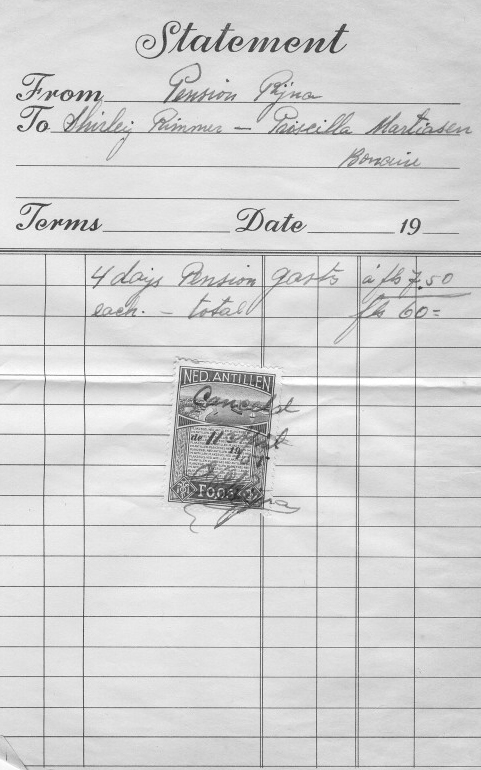 Statement
From Pension Rijna
To Shirley Rimmer — Priscilla Martiasen
Bonaire
Terms Date 19
4 days Pension gasts à fls 7.50
each. — total fls 60=
NED. ANTILLEN
Canceled
de 11 April
19
F0.03